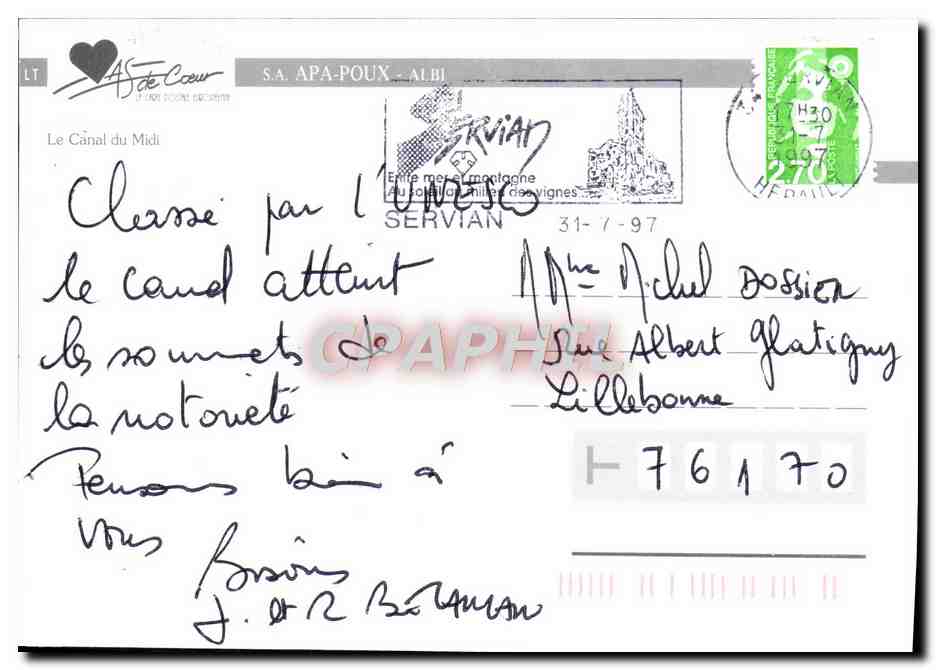 LT
AS de Cœur
LA CARTE POSTALE EUROPÉENNE
S.A. APA-POUX - ALBI
Le Canal du Midi
SERVIAN
Entre mer et montagne
Au soleil au milieu des vignes
SERVIAN
31-7-97
7H30
31-7
1997
HERAULT
REPUBLIQUE FRANÇAISE
LA POSTE
2,70
Classé par l'UNESCO
le canal atteint
les sommets de
la notoriété
Pensons bien à
vous
Bisous
J. et R
Mme Michel DOSSIER
Rue Albert Glatigny
Lillebonne
76170
CPAPHIL